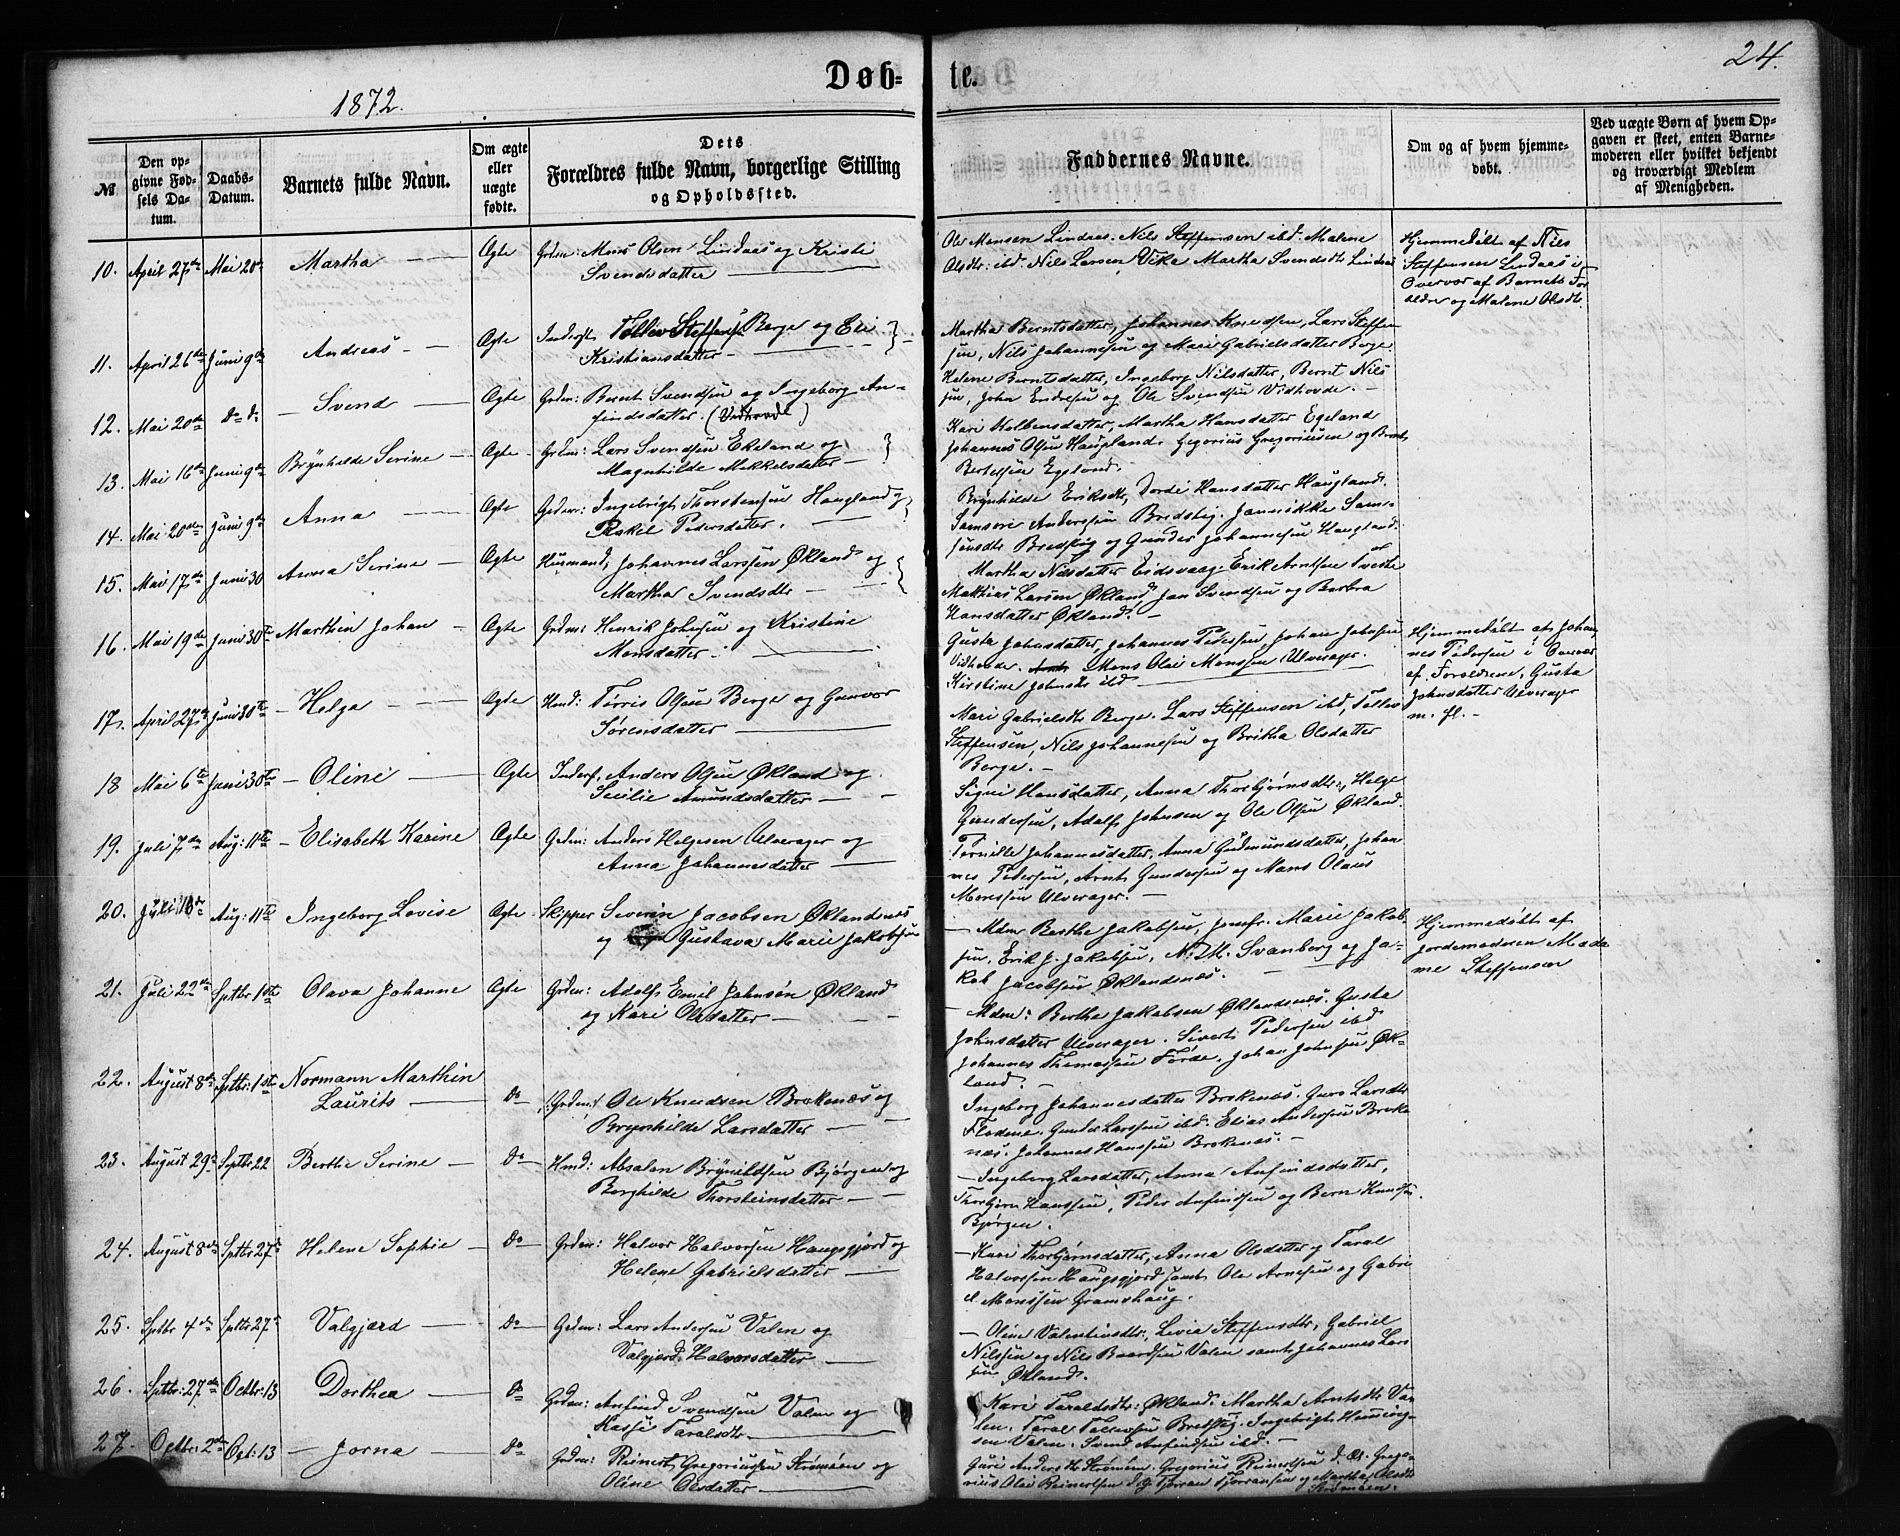 24.
Døb-
te.
1872.
№
Den op-
givne Fød-
sels Da-
tum.
Daabs-
Datum.
Barnets fulde Navn.
Om ægte
eller
uægte
fødte.
Dets
Forældres fulde Navn, borgerlige Stilling
og Opholdssted.
Faddernes Navne.
Om og af hvem hjemme-
døbt.
Ved uægte Børn af hvem Op-
gaven er skeet, enten Barne-
moderen eller hvilket bekjendt
og troværdigt Medlem
af Menigheden.
10. April 27de Mai 20de Martha Ægte Grdm: Mons Olsen Lindaas og Kristi
Svendsdatter
Ole Monsen Lindaas. Nils Steffensen ibd. Malene
Olsdtr: ibd. Nils Larsen Vika Martha Svendsdtr Lindaas
Hjemmedøbt af Nils
Steffensen Lindaas i
Overvær af Barnets For
ældre og Malene Olsdtr
11. April 26de Juni 9de Andreas Ægte Inderst Tollev Steffens. Berge og Eli
Kristiansdatter
Martha Berntsdatter, Johannes Knudsen, Lars Steffen
sen, Nils Johannesen og Mari Gabrielsdatter Berge.
12. Mai 20de do do Svend Ægte Grdm: Bernt Svendsen og Ingeborg An-
findsdatter. (Vidhovde)
Helene Berntsdatter, Ingeborg Nilsdatter, Bernt Nils
sen, John Endresen og Ole Svendsen Vidhovde.
13. Mai 16de Juni 9de Brynhilde Serine Ægte Grdm: Lars Svendsen Ekeland og
Magnhilde Mikkelsdatter
Kari Kolbensdatter, Martha Hansdatter Egeland
Johannes Olsen Haugland. Gregorius Gregoriussen og Bernt
Bertelsen Egeland.
14. Mai 20de Juni 9de Anna Ægte Grdm: Ingebrigt Thorstensen Haugland og
Rakel Pedersdatter.
Brynhilde Eriksdtr, Dordi Hansdatter Haugland.
Samson Anderssen Bredsteg. Jannikke Sam-
sonsdtr Bredskog og Gunder Johannesen Haugland.
15. Mai 17de Juni 30 Anna Serine Ægte Husmand, Johannes Larsen Økland og
Martha Svendsdtr
Martha Nilsdatter Eidsvaag. Erik Arntsen Tveite
Matthias Larsen Økland Jan Svendsen og Barbra
Hansdatter Økland.
16. Mai 19de Juni 30te Marthin Johan Ægte Grdm: Henrik Johnsen og Kristine
Monsdatter
Gusta Johnsdatter, Johannes Pedersen, Johan Johnsen
Vidhovde. Mons Olai Monsen Ulverager.
Kirstine Johnsdtr ibd
Hjemmedøbt af Johan
nes Pedersen i Overvær
af Forældrene, Gusta
Johnsdatter Ulverager
m. fl.
17. April 27de Juni 30te Helga Ægte Hmd: Tørris Olsen Berge og Gunvor
Sørensdatter
Mari Gabrielsdtr Berge. Lars Steffensen ibd, Tollev
Steffensen, Nils Johannesen og Britha Olsdatter
Berge.
18 Mai 6te Juni 30te Oline Ægte Inderst, Anders Olsen Økland og
Secilie Amundsdatter
Signi Hansdatter, Anna Thorbjørnsdtr, Helge
Gundersen, Adolf Johnsen og Ole Olsen Økland.
19. Juli 7de Aug: 11te Elisabeth Karine Ægte Grdm: Anders Helgesen Ulverager og
Anna Johannesdatter
Tornille Johannesdatter, Anna Gudmundsdatter, Johan
nes Pedersen, Arnt Gundersen og Mons Olaus
Monssen Ulverager.
20. Juli Aug: 11te Ingeborg Lovise Ægte Skipper Severin Jacobsen Øklandnes
og Gustava Marie Jakobsen
Mdm Berthe Jakobsen, Jomfr. Marie Jakob-
sen, Erik J. Jakobsen, N. Th. Svanberg og Ja-
kob Jacobsen Øklandnæs.
Hjemmedøbt af
Jordemoderen Mada
me Steffensen
21. Juli 22de Septbr 1ste Olava Johanne Ægte Grdm: Adolf Emil Johnsen Økland
og Kari Olsdatter
Mdm: Bertha Jakobsen Øklandsnæs. Gusta
Johnsdatter Ulverager. Sivert Pedersen ibd
Johannes Thomassen Førde. Johan Johnsen Øk-
land.
22. August 8de Septbr: 1ste Normann Marthin
Laurits Do Grdm: Ole Knudsen Brokenæs og
Brynhilde Larsdatter
Ingeborg Johannesdatter Brokenæs. Guro Larsdtr
Flodene. Gunder Larssen ibd. Elias Andersen Broke
næs. Johannes Hanssen Brokenæs.
23. August 29de Septbr 22 Berthe Serine Do Hmd: Absalon Brynildsen Bjørgen og
Borghilde Thorsteinsdatter
Ingeborg Larsdatter, Anna Anfindsdatter,
Thorbjørn Hanssen, Peder Anfindsen og Bern Knudsen
Bjørgen.
24. August 8de Septbr 27de Helene Sophie Do Grdm: Halvor Halvorsen Haugsgjerd og
Helene Gabrielsdatter
Kari Thorbjørnsdatter, Anna Olsdatter og Taral
Halvorsen Haugsgjerd samt Ole Arnesen og Gabri
el Monssen Gramshaug.
25. Septbr 4de Septbr 27de Valgjerd Do Grdm: Lars Andersen Valen og
Valgjerd Halvorsdatter
Oline Valentinsdtr, Livia Steffensdtr, Gabriel
Nilssen og Nils Baardsen Valen samt Johannes Lars
sen Økland.
26. Septbr: 27de Octbr: 13 Dorthea Do Grdm: Anfind Svendsen Valen og
Kasse Taralsdtr
Kari Taraldsdtr: Økland. Martha Arntsdtr Va-
len. Taral Tollevsen Bredsteg. Ingebrigt Henning-
sen Valen. Svend Anfindsen ibd.
27. Octbr: 2den Oct: 13 Jorna Do Grdm: Reinert Gregoriussen Strømøen og
Oline Olsdatter
Guri Andersdtr Strømøen. Gregorius Reinertsen d. Æ. Grego-
rius Olai Reinertsen d. y. Tjerran Tjerransen og Martha Olsdtr
Strømøen.